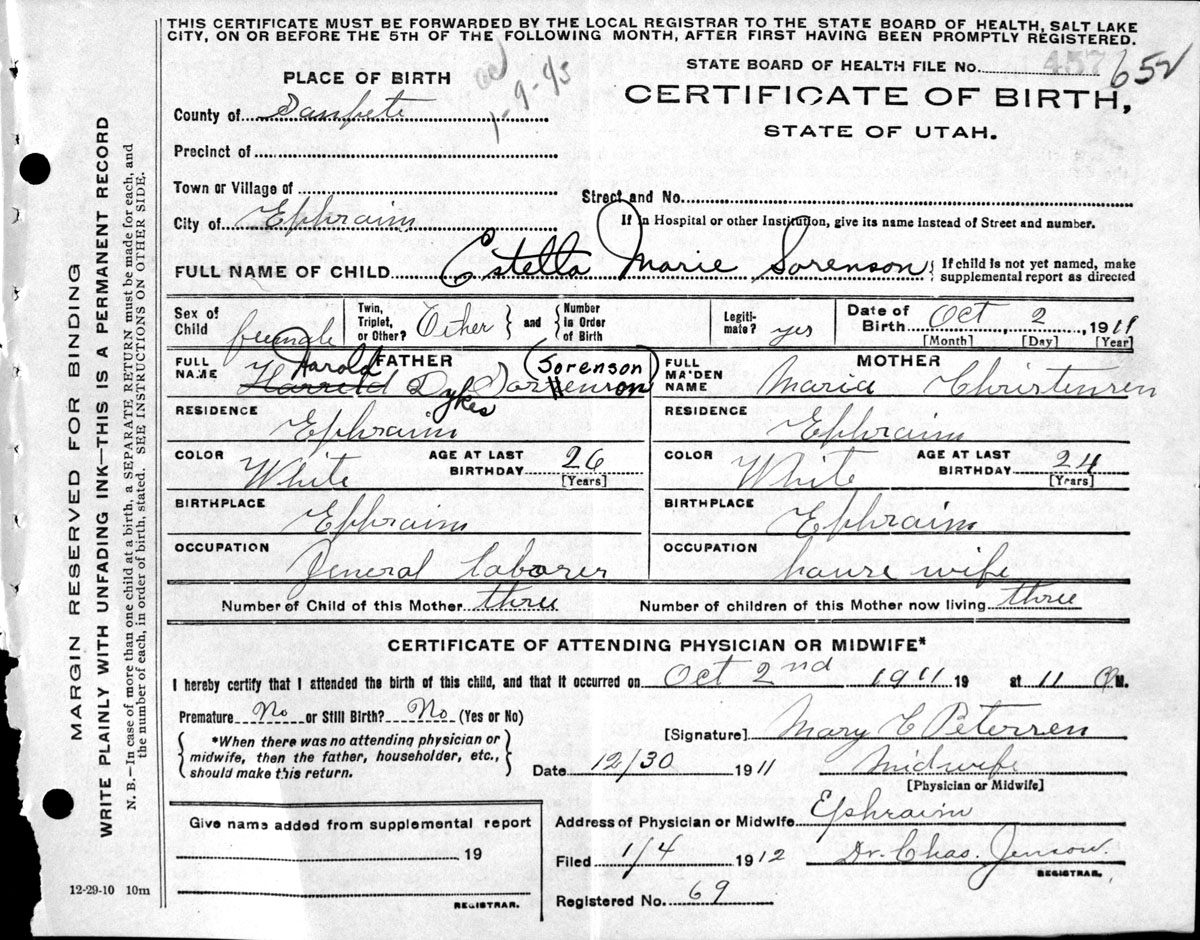 THIS CERTIFICATE MUST BE FORWARDED BY THE LOCAL REGISTRAR TO THE STATE BOARD OF HEALTH, SALT LAKE
CITY, ON OR BEFORE THE 5TH OF THE FOLLOWING MONTH, AFTER FIRST HAVING BEEN PROMPTLY REGISTERED.
MARGIN RESERVED FOR BINDING
WRITE PLAINLY WITH UNFADING INK—THIS IS A PERMANENT RECORD
N. B.—In case of more than one child at a birth, a SEPARATE RETURN must be made for each, and
the number of each, in order of birth, stated. SEE INSTRUCTIONS ON OTHER SIDE.
PLACE OF BIRTH
STATE BOARD OF HEALTH FILE No. 457 652
CERTIFICATE OF BIRTH,
STATE OF UTAH.
County of Sanpete
Precinct of
Town or Village of
Street and No.
City of Ephraim
If in Hospital or other Institution, give its name instead of Street and number.
FULL NAME OF CHILD Estella Marie Sorenson { If child is not yet named, make
supplemental report as directed
Sex of Child female
Twin, Triplet, or Other? Other } and { Number in Order of Birth
Legitimate? yes
Date of Birth Oct, 2, 1911
[Month] [Day] [Year]
FATHER
FULL NAME Harold Dykes Sorenson
MOTHER
FULL MAIDEN NAME Maria Christensen
RESIDENCE Ephraim
RESIDENCE Ephraim
COLOR White AGE AT LAST BIRTHDAY 26 [Years]
COLOR White AGE AT LAST BIRTHDAY 24 [Years]
BIRTHPLACE Ephraim
BIRTHPLACE Ephraim
OCCUPATION General Laborer
OCCUPATION house wife
Number of Child of this Mother three
Number of children of this Mother now living three
CERTIFICATE OF ATTENDING PHYSICIAN OR MIDWIFE*
I hereby certify that I attended the birth of this child, and that it occurred on Oct 2nd 1911 19 at 11 M.
Premature No or Still Birth? No (Yes or No)
{ *When there was no attending physician or
midwife, then the father, householder, etc.,
should make this return. }
[Signature] Mary C Petersen
Date 12/30 1911 Midwife
[Physician or Midwife]
Give name added from supplemental report
19
REGISTRAR.
Address of Physician or Midwife Ephraim
Filed 1/4 1912 Dr. Chas. Jenson.
REGISTRAR.
Registered No. 69
12-29-10 10m